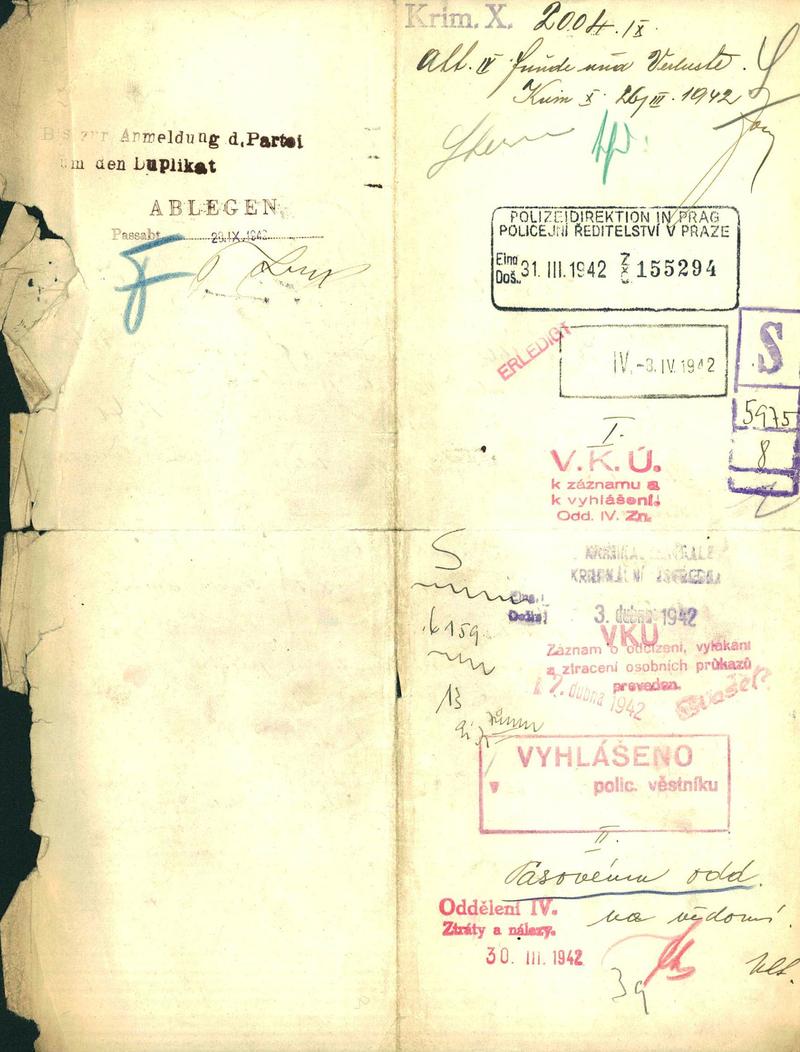 Bis zur Anmeldung d. Partei
um den Duplikat
ABLEGEN
Passabt. 29.IX.1942
Krim. X. 2004.IX.
Abt. IV Funde und Verluste.
Krim X. 26/III. 1942
POLIZEIDIREKTION IN PRAG
POLICEJNÍ ŘEDITELSTVÍ V PRAZE
Eing.
Doš. 31. III. 1942 Z Č 155294
ERLEDIGT
IV. -3. IV. 1942
S
5975
8
I.
V.K.Ú.
k záznamu a
k vyhlášení.
Odd. IV. Zn.
S
KRIMINALZENTRALE
KRIMINÁLNÍ ÚSTŘEDNA
Došlo: 3. dubna 1942
6159
VKÚ
Záznam o odcizení, vylákání
a ztracení osobních průkazů
proveden.
7. dubna 1942
13
VYHLÁŠENO
v polic. věstníku
II.
Pasovému odd.
na vědomí.
Oddělení IV.
Ztráty a nálezy.
30. III. 1942